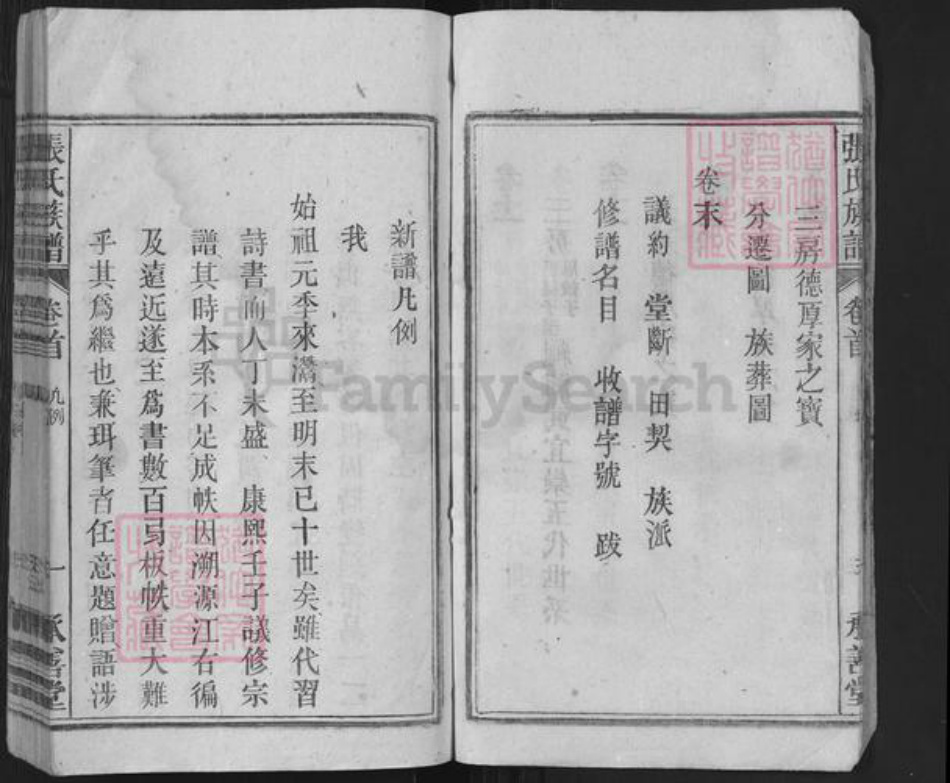 張氏族譜 卷首 承善堂
三房德厚家之寶
分遷圖 族葬圖
卷末
議約 堂斷 田契 族派
修譜名目 收譜字號 跋
新譜凡例
我
始祖元季來灊至明末已十世矣雖代習
詩書而人丁未盛 康熙壬子議修宗
譜其時本系不足成帙因溯源江右徧
及遠近遂至為書數百頁板帙重大難
乎其為繼也兼珥筆者任意題贈語涉
張氏族譜 卷首 凡例 一 承善堂
FamilySearch